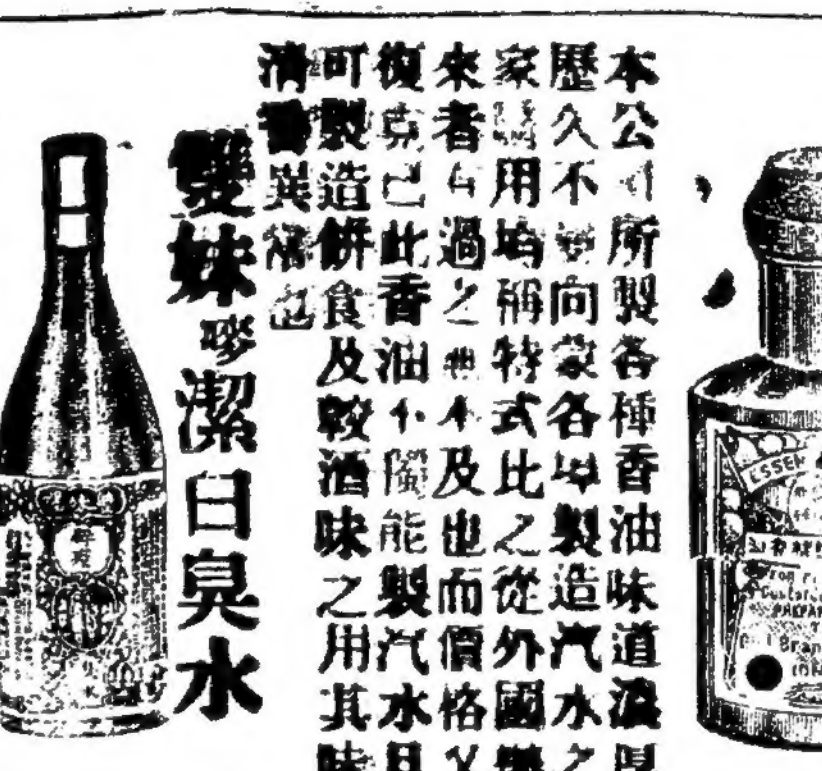 本公司所製各種香油味道濃厚
歷久不變向蒙各埠製造汽水之
家購用均稱特式比之從外國辦
來者有過之無不及也而價格又
復克己此香油不獨能製汽水且
可製造餅食及較酒味之用其味
清香異常也
雙妹嘜潔白臭水
ESSEN